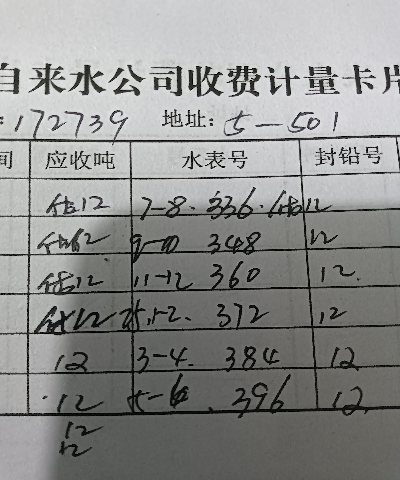 自来水公司收费计量卡片
:172739 地址: 5-501
间 应收吨 水表号 封铅号
估12 7-8. 336.估 12
估12 9-10 348 12
估12 11-12 360 12.
估12 25,1-2. 372 12
12 3-4. 384 12
12 5-6. 396 12
12
12